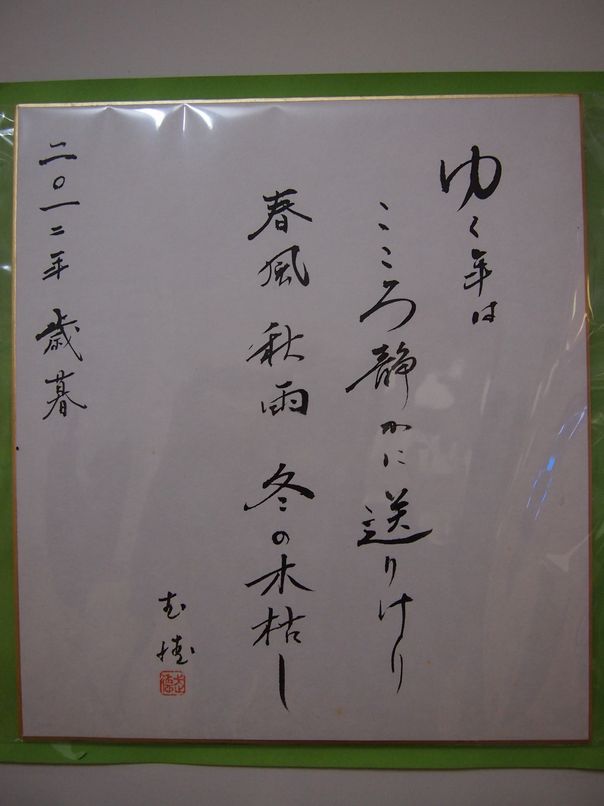 ゆく年は
こころ静かに送りけり
春風 秋雨 冬の木枯し
二〇一二年 歳暮